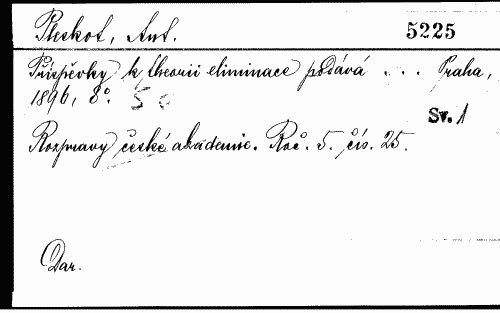 Pleskot, Ant. 5225
Příspěvky k theorii eliminace podává . . . Praha,
1896, 8º. 5
Sv. 1
Rozpravy české akademie. Roč. 5. čís. 25.
Dar.